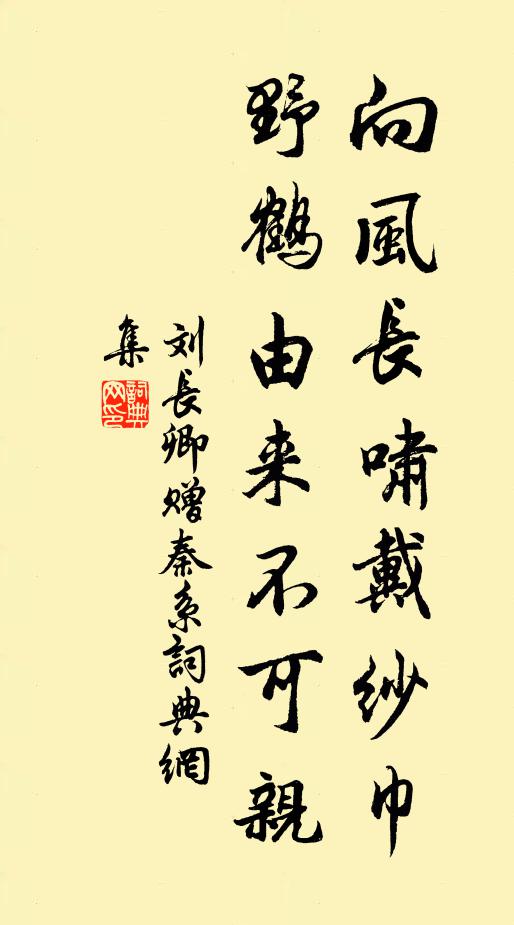 向風長嘯戴紗巾
野鶴由来不可親
刘長卿贈秦系詞典網
集
詞典網印